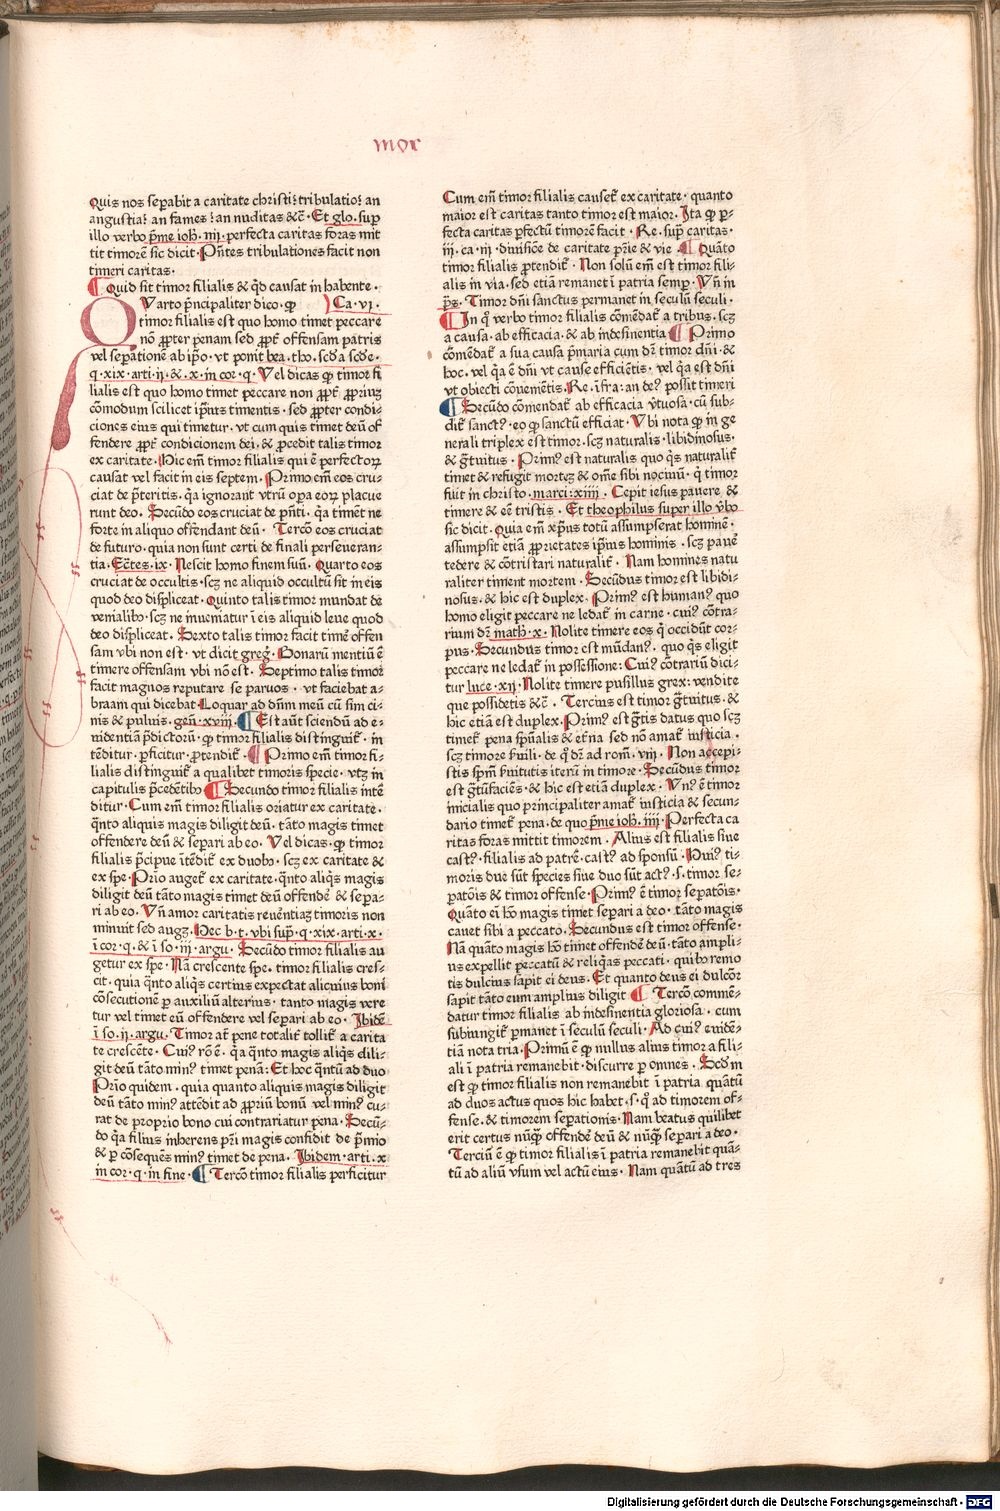 mor
quis nos sepabit a caritate christi: tribulatio: an
angustia: an fames: an nuditas &c̄· Et glo· sup
illo verbo p̄me ioh̄· iiij· perfecta caritas foras mit
tit timorē sic dicit· Pn̄tes tribulationes facit non
timeri caritas·
¶ Quid sit timor filialis & qd̄ causat in habente·
QVarto p̄ncipaliter dico· ꝙ ) Ca· vi·
timor filialis est quo homo timet peccare
nō ꝓpter penam sed ꝓpt̄ offensam patris
vel sepationē ab ip̄o· vt ponit bea· tho· sc̄da sc̄de·
q· xix· arti· ij· &· x· in cor· q· Vel dicas ꝙ timor fi
lialis est quo homo timet peccare non ꝓpt̄ ꝓpriū
cōmodum scilicet ip̄ius timentis· sed ꝓpter condi-
ciones eius qui timetur· vt cum quis timet deū of
fendere ꝓpt̄ condicionem dei· & ꝓcedit talis timor
ex caritate· Hic em̄ timor filialis qui ē perfectoꝝ
causat vel facit in eis septem· Primo em̄ eos cru-
ciat de p̄teritis· q̄a ignorant vtrū oꝑa eoꝝ placue
runt deo· Secūdo eos cruciat de pn̄ti· q̄a timent ne
forte in aliquo offendant deū· Tercō eos cruciat
de futuro· quia non sunt certi de finali perseueran-
tia· Ecc̄tes· ix· Nescit homo finem suū· Quarto eos
cruciat de occultis· scꝫ ne aliquid occultū sit in eis
quod deo displiceat· Quinto talis timor mundat de
venialibꝫ· scꝫ ne inueniatur ī eis aliquid leue quod
deo displiceat· Sexto talis timor facit timē offen
sam vbi non est· vt dicit greg̣· Bonarū mentiū ē
timere offensam vbi nō est· Septimo talis timor
facit magnos reputare se paruos· vt faciebat a-
braam qui dicebat· Loquar ad dn̄m meū cū sim ci-
nis & puluis· gen̄· xviij· ¶ Est aūt sciendū ad e-
uidentiam p̄dictorū· ꝙ timor filialis distinguit̄· in
tēditur· ꝑficitur· ꝓtendit̄· ¶ Primo em̄ timor fi-
lialis distinguit̄ a qualibet timoris specie· vtꝫ in
capitulis p̄cedētibꝫ ¶ Secundo timor filialis intē
ditur· Cum em̄ timor filialis oriatur ex caritate·
q̄nto aliquis magis diligit deū· tāto magis timet
offendere deū & separi ab eo· Vel dicas· ꝙ timor
filialis p̄cipue itēdit̄ ex duobꝫ· scꝫ ex caritate &
ex spe· Prio auget̄ ex caritate· q̄nto aliq̄s magis
diligit deū tāto magis timet deū offendē & sepa-
ri ab eo· Vn̄ amor caritatis reuētiaꝫ timoris non
minuit sed augꝫ· Hec b· t· vbi sup̄· q· xix· arti· x·
ī cor· q· & ī so· iij· argu· Secūdo timor filialis au
getur ex spe· Nā crescente spe· timor filialis cres-
cit· quia q̄nto aliq̄s certius expectat alicuius boni
cōsecutionē ꝑ auxiliū alterius· tanto magis vere
tur vel timet eū offendere vel separi ab eo· Ibidē
ī so· ij· argu· Timor at̄ pene totalit̄ tollit̄ a carita
te crescēte· Cuiꝰ rō ē· q̄a q̄nto magis aliq̄s dili-
git deū tāto minꝰ timet penā: Et hoc q̄ntū ad duo
Prio quidem· quia quanto aliquis magis diligit
deū tāto minꝰ attēdit ad ꝓpriū bonū vel minꝰ cu-
rat de proprio bono cui contrariatur pena· Secū-
do q̄a filius inherens pr̄i magis confidit de p̄mio
& ꝑ cōseques minꝰ timet de pena· Ibidem· arti· x
in cor· q· in fine· ¶ Tercō timor filialis perficitur
Cum em̄ timor filialis causet̄ ex caritate· quanto
maior est caritas tanto timor est maior· Ita ꝙ ꝑ-
fecta caritas ꝑfectū timorē facit· Re· sup̄ caritas·
iij· ca· ij· diuisiōe de caritate pr̄ie & vie· ¶ Quāto
timor filialis ꝓtendit̄· Non solū em̄ est timor fili-
alis in via· sed etiā remanet ī patria semꝑ· Vn̄ in
ps̄· Timor dn̄i sanctus permanet in seculū seculi·
¶ In q̄ verbo timor filialis cōmēdat̄ a tribus· scꝫ
a causa· ab efficacia· & ab indesinentia ¶ Primo
cōmēdat̄ a sua causa p̄maria cum dr̄ timor dn̄i· &
hoc· vel q̄a ē dn̄i vt cause efficiētis· vel q̄a est dn̄i
vt obiecti cōuenientis· Re· īfra: an deꝰ possit timeri
¶ Secūdo cōmendat̄ ab efficacia v̄tuosa· cū sub-
dit̄ sanctꝰ· eo ꝙ sanctū efficiat· Vbi nota ꝙ in ge
nerali triplex est timor· scꝫ naturalis· libidinosus·
& ḡtuitus· Primꝰ est naturalis quo q̄s naturalit̄
timet & refugit morteꝫ & om̄e sibi nociuū· q̄ timor
fuit in christo· marci· xiiij· Cepit iesus pauere &
timere & eē tristis· Et theophilus super illo v̄bo
sic dicit· Quia em̄ xp̄us totū assumpserat hominē·
assumpsit etiā ꝓprietates ip̄ius hominis· scꝫ pauē
tedere & cōtristari naturalit̄· Nam homines natu
raliter timent mortem· Secūdus timor est libidi-
nosus· & hic est duplex· Primꝰ est humanꝰ quo
homo eligit peccare ne ledat̄ in carne· cuiꝰ cōtra-
rium dr̄ math̄· x· Nolite timere eos q̄ occidūt cor-
pus· Secundus timor est mūdanꝰ· quo q̄s eligit
peccare ne ledat̄ in possessione: Cuiꝰ cōtrariū dici-
tur luce· xij· Nolite timere pusillus grex: vendite
que possidetis &c̄· Tercius est timor ḡtuitus· &
hic etiā est duplex· Primꝰ est ḡtis datus quo scꝫ
timet̄ pena sp̄ualis & et̄na sed nō amat̄ iusticia·
scꝫ timore s̄uili· de q̄ dr̄ ad rom̄· viij· Non accepi-
stis spm̄ s̄uitutis iterū in timore· Secūdus timor
est ḡtūfaciēs· & hic est etiā duplex· Vnꝰ ē timor
inicialis quo principaliter amat̄ iusticia & secun-
dario timet̄ pena· de quo p̄me ioh̄· iiij· Perfecta ca
ritas foras mittit timorem· Alius est filialis siue
castꝰ· filialis ad patrē· castꝰ ad sponsū· Huiꝰ ti-
moris due sūt species siue duo sūt actꝰ· s· timor se-
patōis & timor offense· Primꝰ ē timor sepatōis·
Quāto ei hō magis timet separi a deo· tāto magis
cauet sibi a peccato· Secundus est timor offense·
Nā quāto magis hō timet offendē deū· tāto ampli-
us expellit peccatū & reliq̄as peccati· quibꝫ remo
tis dulcius sapit ei deus· Et quanto deus ei dulcōr
sapit tāto eum amplius diligit ¶ Tercō commē-
datur timor filialis ab indesinentia gloriosa· cum
subiungit̄ ꝑmanet ī seculū seculi· Ad cuiꝰ euidē-
tiā nota tria· Primū ē ꝙ nullus alius timor a fili-
ali ī patria remanebit· discurre ꝑ omnes· Scd̄m
est ꝙ timor filialis non remanebit ī patria quātū
ad duos actus quos hic habet· s· q̄ ad timorem of-
fense· & timorem sepationis· Nam beatus quilibet
erit certus nūqꝫ offendē deū & nūqꝫ separi a deo·
Terciū ē ꝙ timor filialis ī patria remanebit quā-
tū ad aliū vsum vel actū eius· Nam quātū ad tres
Digitalisierung gefördert durch die Deutsche Forschungsgemeinschaft · DFG